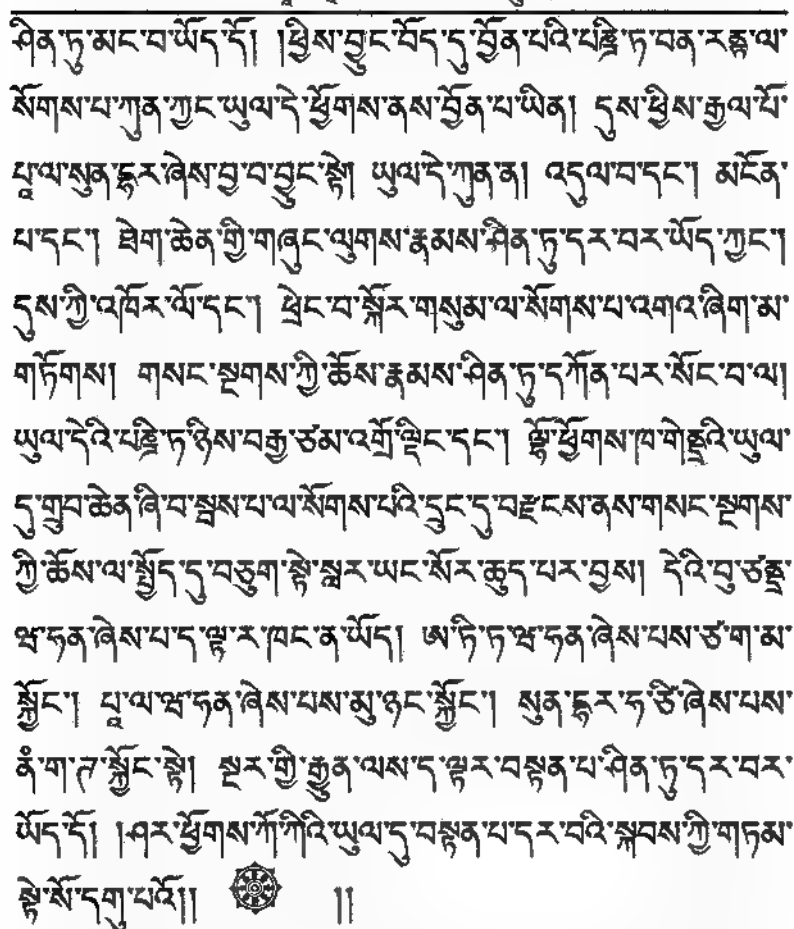 ཤིན་ཏུ་མང་བ་ཡོད་དོ། །ཕྱིས་བྱུང་བོད་དུ་བྱོན་པའི་པཎྜི་ཏ་བན་རཏྣ་ལ་
སོགས་པ་ཀུན་ཀྱང་ཡུལ་དེ་ཕྱོགས་ནས་བྱོན་པ་ཡིན། དུས་ཕྱིས་རྒྱལ་པོ་
པཱ་ལ་སུན་དྷར་ཞེས་བྱ་བ་བྱུང་སྟེ། ཡུལ་དེ་ཀུན་ན། འདུལ་བ་དང༌། མངོན་
པ་དང༌། ཐེག་ཆེན་གྱི་གཞུང་ལུགས་རྣམས་ཤིན་ཏུ་དར་བར་ཡོད་ཀྱང༌།
དུས་ཀྱི་འཁོར་ལོ་དང༌། ཕྲེང་བ་སྐོར་གསུམ་ལ་སོགས་པ་འགའ་ཞིག་མ་
གཏོགས། གསང་སྔགས་ཀྱི་ཆོས་རྣམས་ཤིན་ཏུ་དཀོན་པར་སོང་བ་ལ།
ཡུལ་དེའི་པཎྜི་ཏ་ཉིས་བརྒྱ་ཙམ་འགྲོ་ལྡིང་དང༌། ལྷོ་ཕྱོགས་ཁ་གེནྡྲའི་ཡུལ་
དུ་གྲུབ་ཆེན་ཞི་བ་སྦས་པ་ལ་སོགས་པའི་དྲུང་དུ་བརྫངས་ནས་གསང་སྔགས་
ཀྱི་ཆོས་ལ་སྤྱོད་དུ་བཅུག་སྟེ་སླར་ཡང་སོར་ཆུད་པར་བྱས། དེའི་བུ་ཙནྡྲ་
ཝ་ཧན་ཞེས་པ་ད་ལྟ་ར་ཁང་ན་ཡོད། ཨ་ཏི་ཏ་ཝ་ཧན་ཞེས་པས་ཙ་ག་མ་
སྐྱོང༌། པཱ་ལ་ཝ་ཧན་ཞེས་པས་མུ་ཉང་སྐྱོང༌། སུན་དྷར་ཧ་ཙི་ཞེས་པས་
ནཾ་ག་ཊ་སྐྱོང་སྟེ། སྔར་གྱི་རྒྱུན་ལས་ད་ལྟར་བསྟན་པ་ཤིན་ཏུ་དར་བར་
ཡོད་དོ། །ཤར་ཕྱོགས་ཀོ་ཀིའི་ཡུལ་དུ་བསྟན་པ་དར་བའི་སྐབས་ཀྱི་གཏམ་
སྟེ་སོ་དགུ་པའོ།། །།